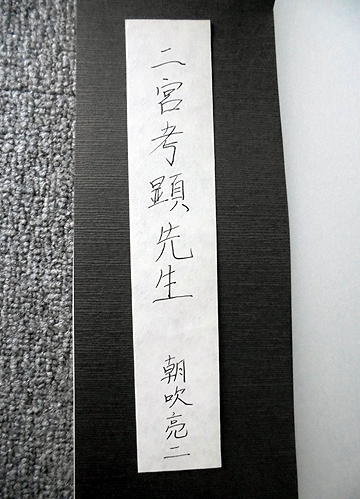 二宮考顕先生
朝吹亮二